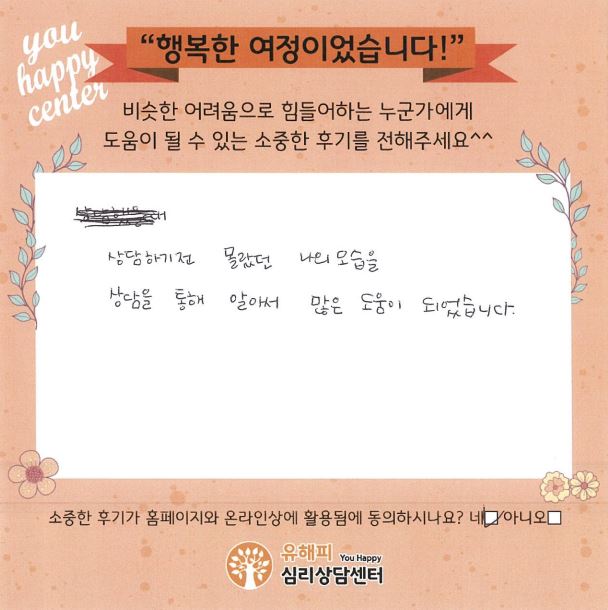 you
happy
center
“행복한 여정이었습니다!”
비슷한 어려움으로 힘들어하는 누군가에게
도움이 될 수 있는 소중한 후기를 전해주세요^^
상담하기전 몰랐던 나의 모습을
상담을 통해 알아서 많은 도움이 되었습니다.
소중한 후기가 홈페이지와 온라인상에 활용됨에 동의하시나요? 네☑/아니오□
유해피 You Happy
심리상담센터